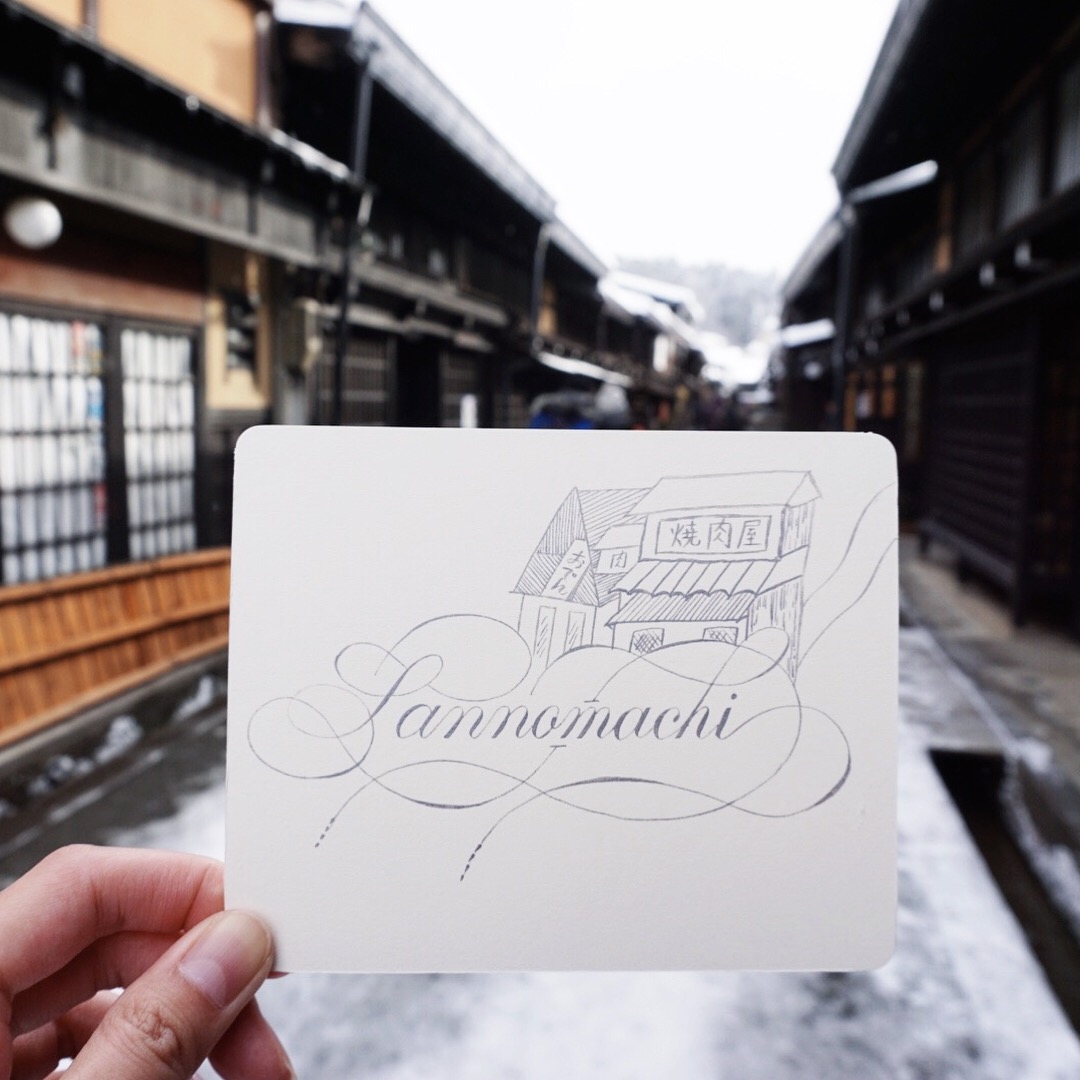 焼肉屋
肉
おでん
Sannomachi